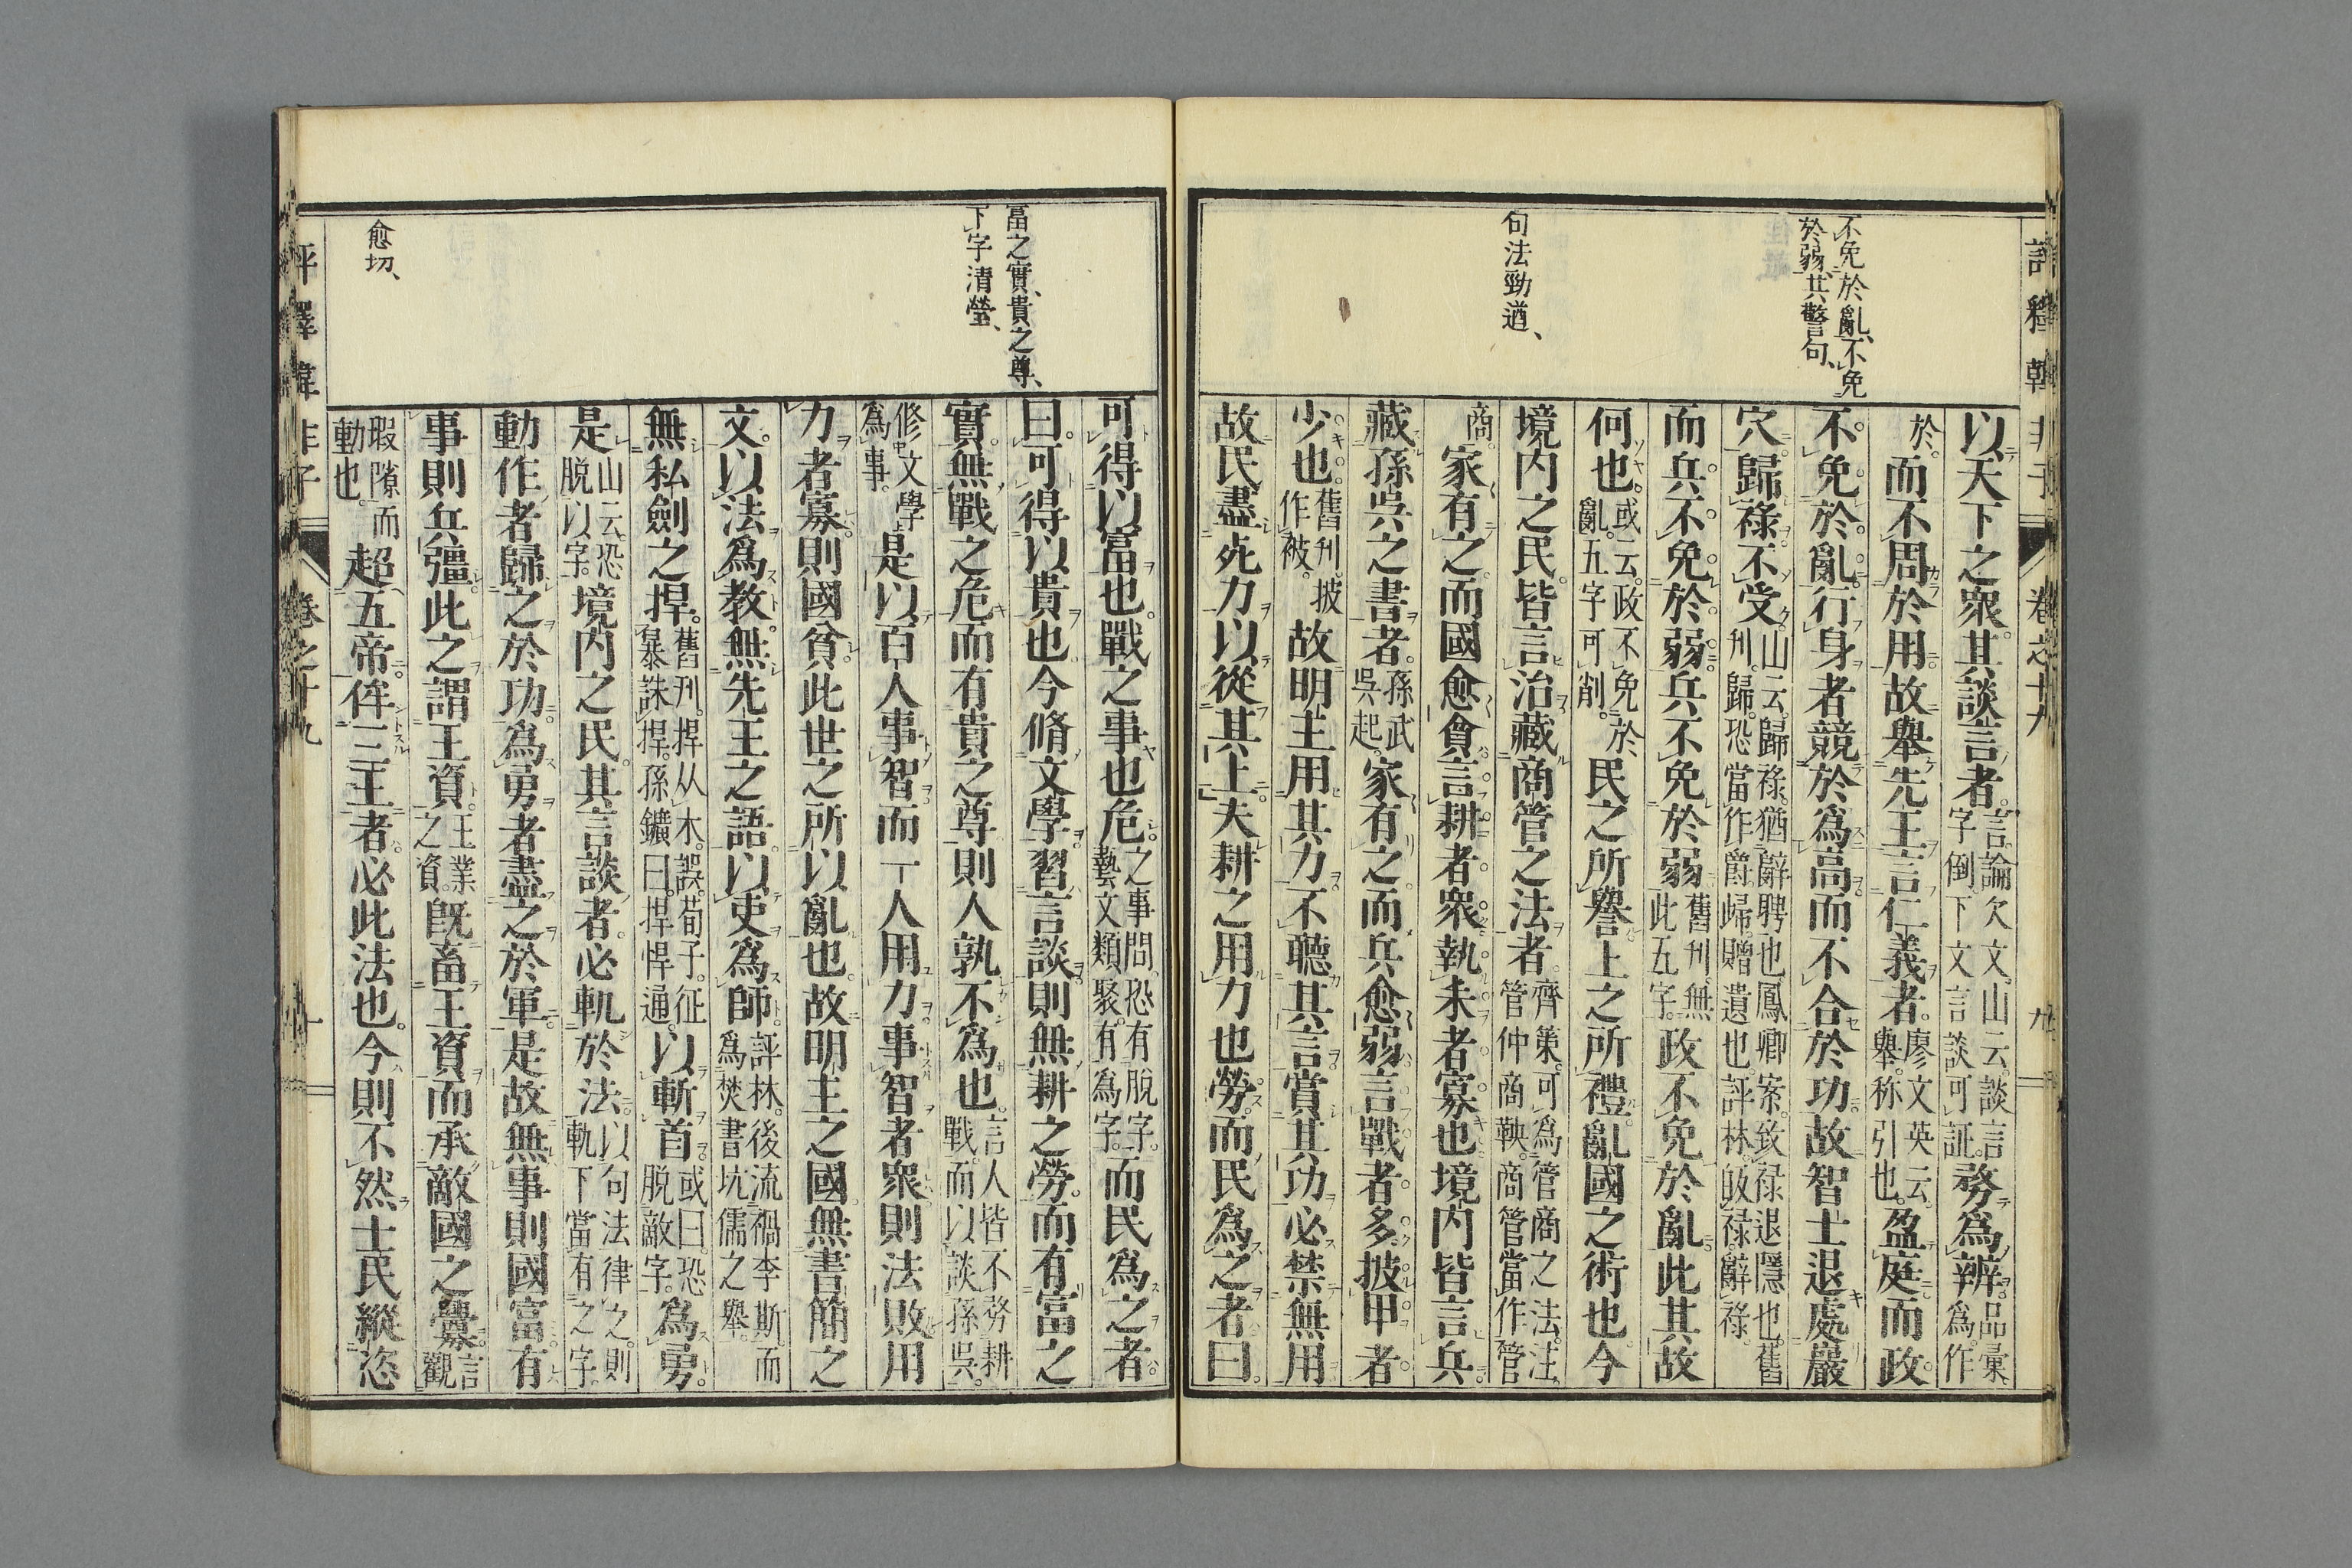 評釋韓非子 卷之十九 九
不免於亂、不免
於弱、其警句、
句法勁遒、
以天下之衆。其談言者。言論欠文。山云。談言字倒。下文言談可証。務爲辨。品彙。爲作
於。而不周於用。故舉先王言仁義者。廖文英云。舉。称引也。盈庭而政
不免於亂。行身者競於爲高。而不合於功。故智士退處巖
穴。歸祿不受。山云。歸祿。猶辭聘也。鳳卿案。致祿退隱也。舊刊。歸。恐當作爵。歸。贈遺也。評林。皈祿。辭祿。
而兵不免於弱。兵不免於弱舊刊。無此五字。政不免於亂。此其故
何也。或云。政不免於亂。五字可削。民之所譽。上之所禮。亂國之術也。今
境内之民。皆言治。藏商管之法者。齊策。可爲管商之法。注。管仲商鞅。商管當作管
商。家有之。而國愈貧。言耕者衆。執耒者寡也。境内皆言兵。
藏孫吳之書者。孫武吳起。家有之。而兵愈弱。言戰者多。披甲者
少也。舊刊。披作被。故明主用其力。不聽其言。賞其功。必禁無用。
故民盡死力以從其上。夫耕之用力也勞。而民爲之者。曰。
富之實、貴之尊、
下字清瑩、
愈切、
可得以富也。戰之事也危。之事問。恐有脫字。藝文類聚。有爲字。而民爲之者。
曰。可得以貴也。今脩文學。習言談。則無耕之勞。而有富之
實。無戰之危。而有貴之尊。則人孰不爲也。言人皆不務耕戰。而以談孫吳。
修文學爲事。是以百人事智。而一人用力。事智者衆。則法敗。用
力者寡。則國貧。此世之所以亂也。故明主之國。無書簡之
文。以法爲教。無先王之語。以吏爲師。評林。後流禍李斯。而爲焚書坑儒之舉。
無私劍之捍。舊刊。捍从木。誤。荀子。征暴誅捍。孫鑛曰。捍悍通。以斬首或曰。恐脫敵字。爲勇。
是山云。恐脫以字。境内之民。其言談者。必軌於法。以句法律之。則軌下當有之字。
動作者歸之於功。爲勇者盡之於軍。是故無事則國富。有
事則兵彊。此之謂王資。王業之資。旣畜王資。而承敵國之釁。言觀
瑕隙而動也。超五帝。侔三王者。必此法也。今則不然。士民縱恣
評釋韓非子 卷之十九